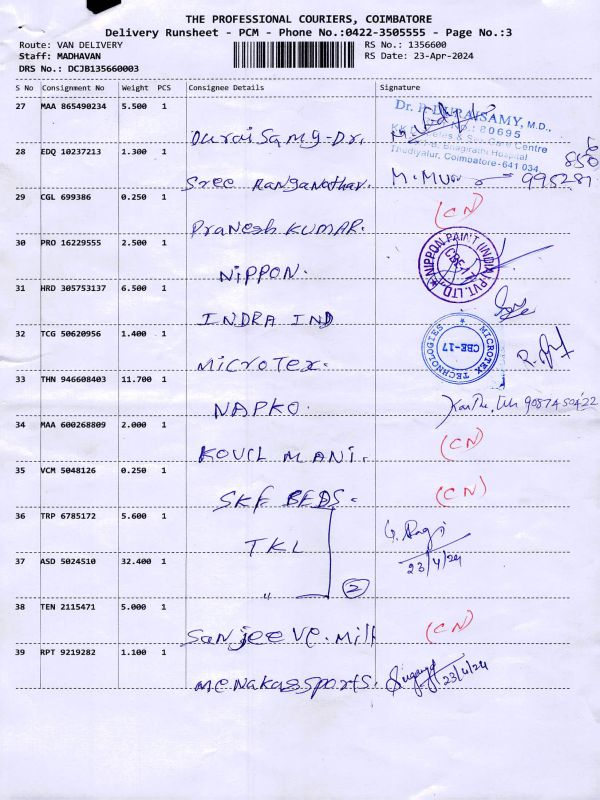 THE PROFESSIONAL COURIERS, COIMBATORE
Delivery Runsheet - PCM - Phone No.:0422-3505555 - Page No.:3
Route: VAN DELIVERY RS No.: 1356600
Staff: MADHAVAN RS Date: 23-Apr-2024
DRS No.: DCJB135660003
S No Consignment No Weight PCS Consignee Details Signature
27 MAA 865490234 5.500 1
Durai Samy-Dr.
Dr. P. DURAISAMY, M.D.,
80695
Care Centre
Bhagirathi Hospital
Thudiyalur, Coimbatore-641 034
28 EDQ 10237213 1.300 1
Sree Ranganathar.
29 CGL 699386 0.250 1
Pranesh KUMAR. (CN)
30 PRO 16229555 2.500 1
NIPPON.
NIPPON PAINT (INDIA) PVT. LTD
CBE-17
31 HRD 305753137 6.500 1
INDRA IND
32 TCG 50620956 1.400 1
Microtex.
MICROTEX TECHNOLOGIES
CBE-17
33 THN 946608403 11.700 1
NAPKO.
34 MAA 600268809 2.000 1
KOVIL MANI. (CN)
35 VCM 5048126 0.250 1
SKF BEDS. (CN)
36 TRP 6785172 5.600 1
TKL
23/4/24
37 ASD 5024510 32.400 1
" 2
38 TEN 2115471 5.000 1
Sanjeeve. Mill (CN)
39 RPT 9219282 1.100 1
Menakassports. 23/4/24